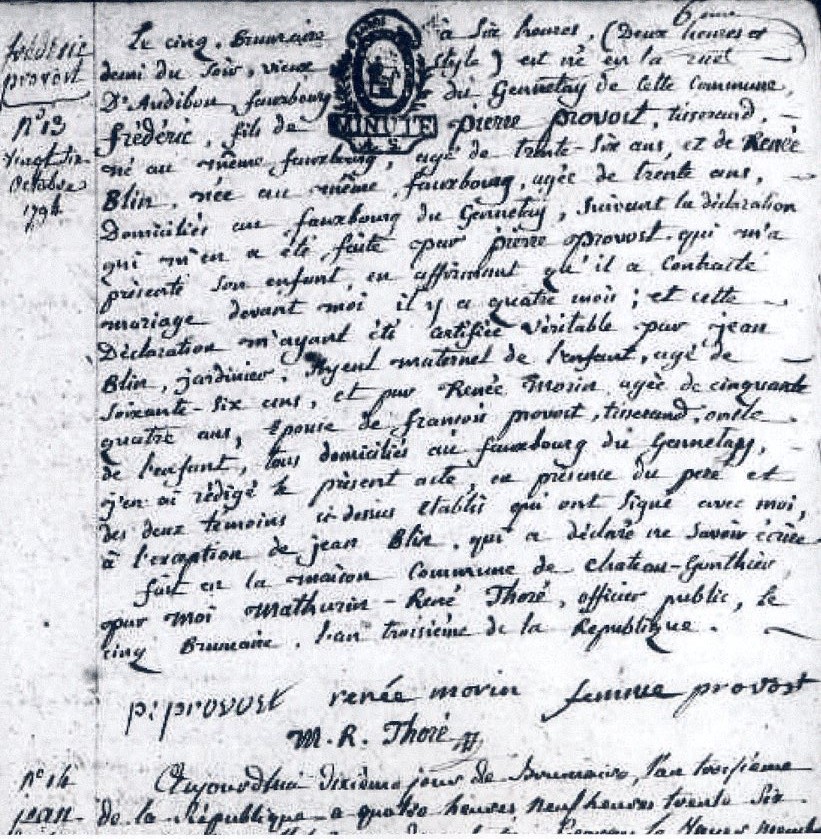 6eme
frédéric
provost
n° 13
vingt six
Octobre
1794
Le cinq Brumaire à six heures, (Deux heures et
demi du soir, vieux style) est né en la rue
Dr Audibon fauxbourg du Gennetay de cette Commune,
MINUTE
frédéric, fils de pierre provost, tisserand,
né au même fauxbourg, agé de trente-six ans, et de Renée
Blin, née au même fauxbourg, agée de trente ans,
Domiciliés au fauxbourg du Gennetay, suivant la déclaration
qui m'en a été faite par pierre provost qui m'a
présenté son enfant, en affirmant qu'il a Contracté
mariage devant moi il y a quatre mois ; et cette
Déclaration m'ayant été certifiée véritable par jean
Blin, jardinier, Ayeul maternel de l'enfant, agé de
soixante-six ans, et par Renée Morin agée de cinquante
quatre ans, Epouse de françois provost, tisserand, oncle
de l'enfant, tous domiciliés au fauxbourg du Gennetay,
j'en ai rédigé le présent acte, en présence du pere et
des deux témoins ci-dessus etablis qui ont signé avec moi,
à l'exception de jean Blin, qui a déclaré ne savoir écrire
fait en la maison Commune de chateau-Gonthier,
par moi Mathurin-René Thoré, officier public, le
cinq Brumaire, l'an troisième de la République.
p: provost renée morin femme provost
M. R. Thoré
n° 14
jean
Aujourdhui dixième jour de Brumaire, l'an troisième
de la République a quatre heures neuf heures trente six